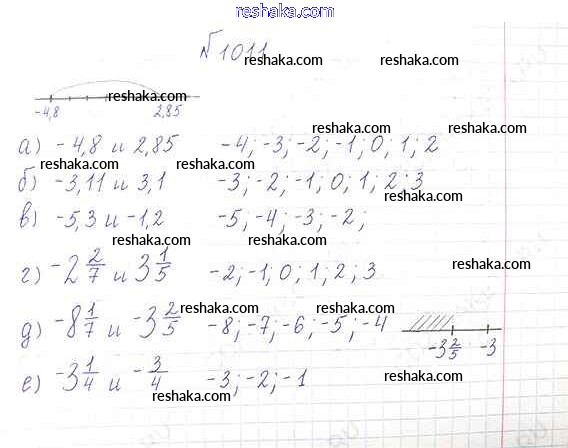 reshaka.com
№1011
reshaka.com
reshaka.com
-4,8 2,85
reshaka.com reshaka.com
а) -4,8 и 2,85 -4; -3; -2; -1; 0; 1; 2
reshaka.com reshaka.com reshaka.com
б) -3,11 и 3,1 -3; -2; -1; 0; 1; 2; 3
reshaka.com reshaka.com
в) -5,3 и -1,2 -5; -4; -3; -2;
reshaka.com reshaka.com reshaka.com
г) -2 2/7 и 3 1/5 -2; -1; 0; 1; 2; 3
reshaka.com reshaka.com
д) -8 1/7 и -3 2/5 -8; -7; -6; -5; -4
-3 2/5 -3
е) -3 1/4 и -3/4 -3; -2; -1
reshaka.com reshaka.com
reshaka.com